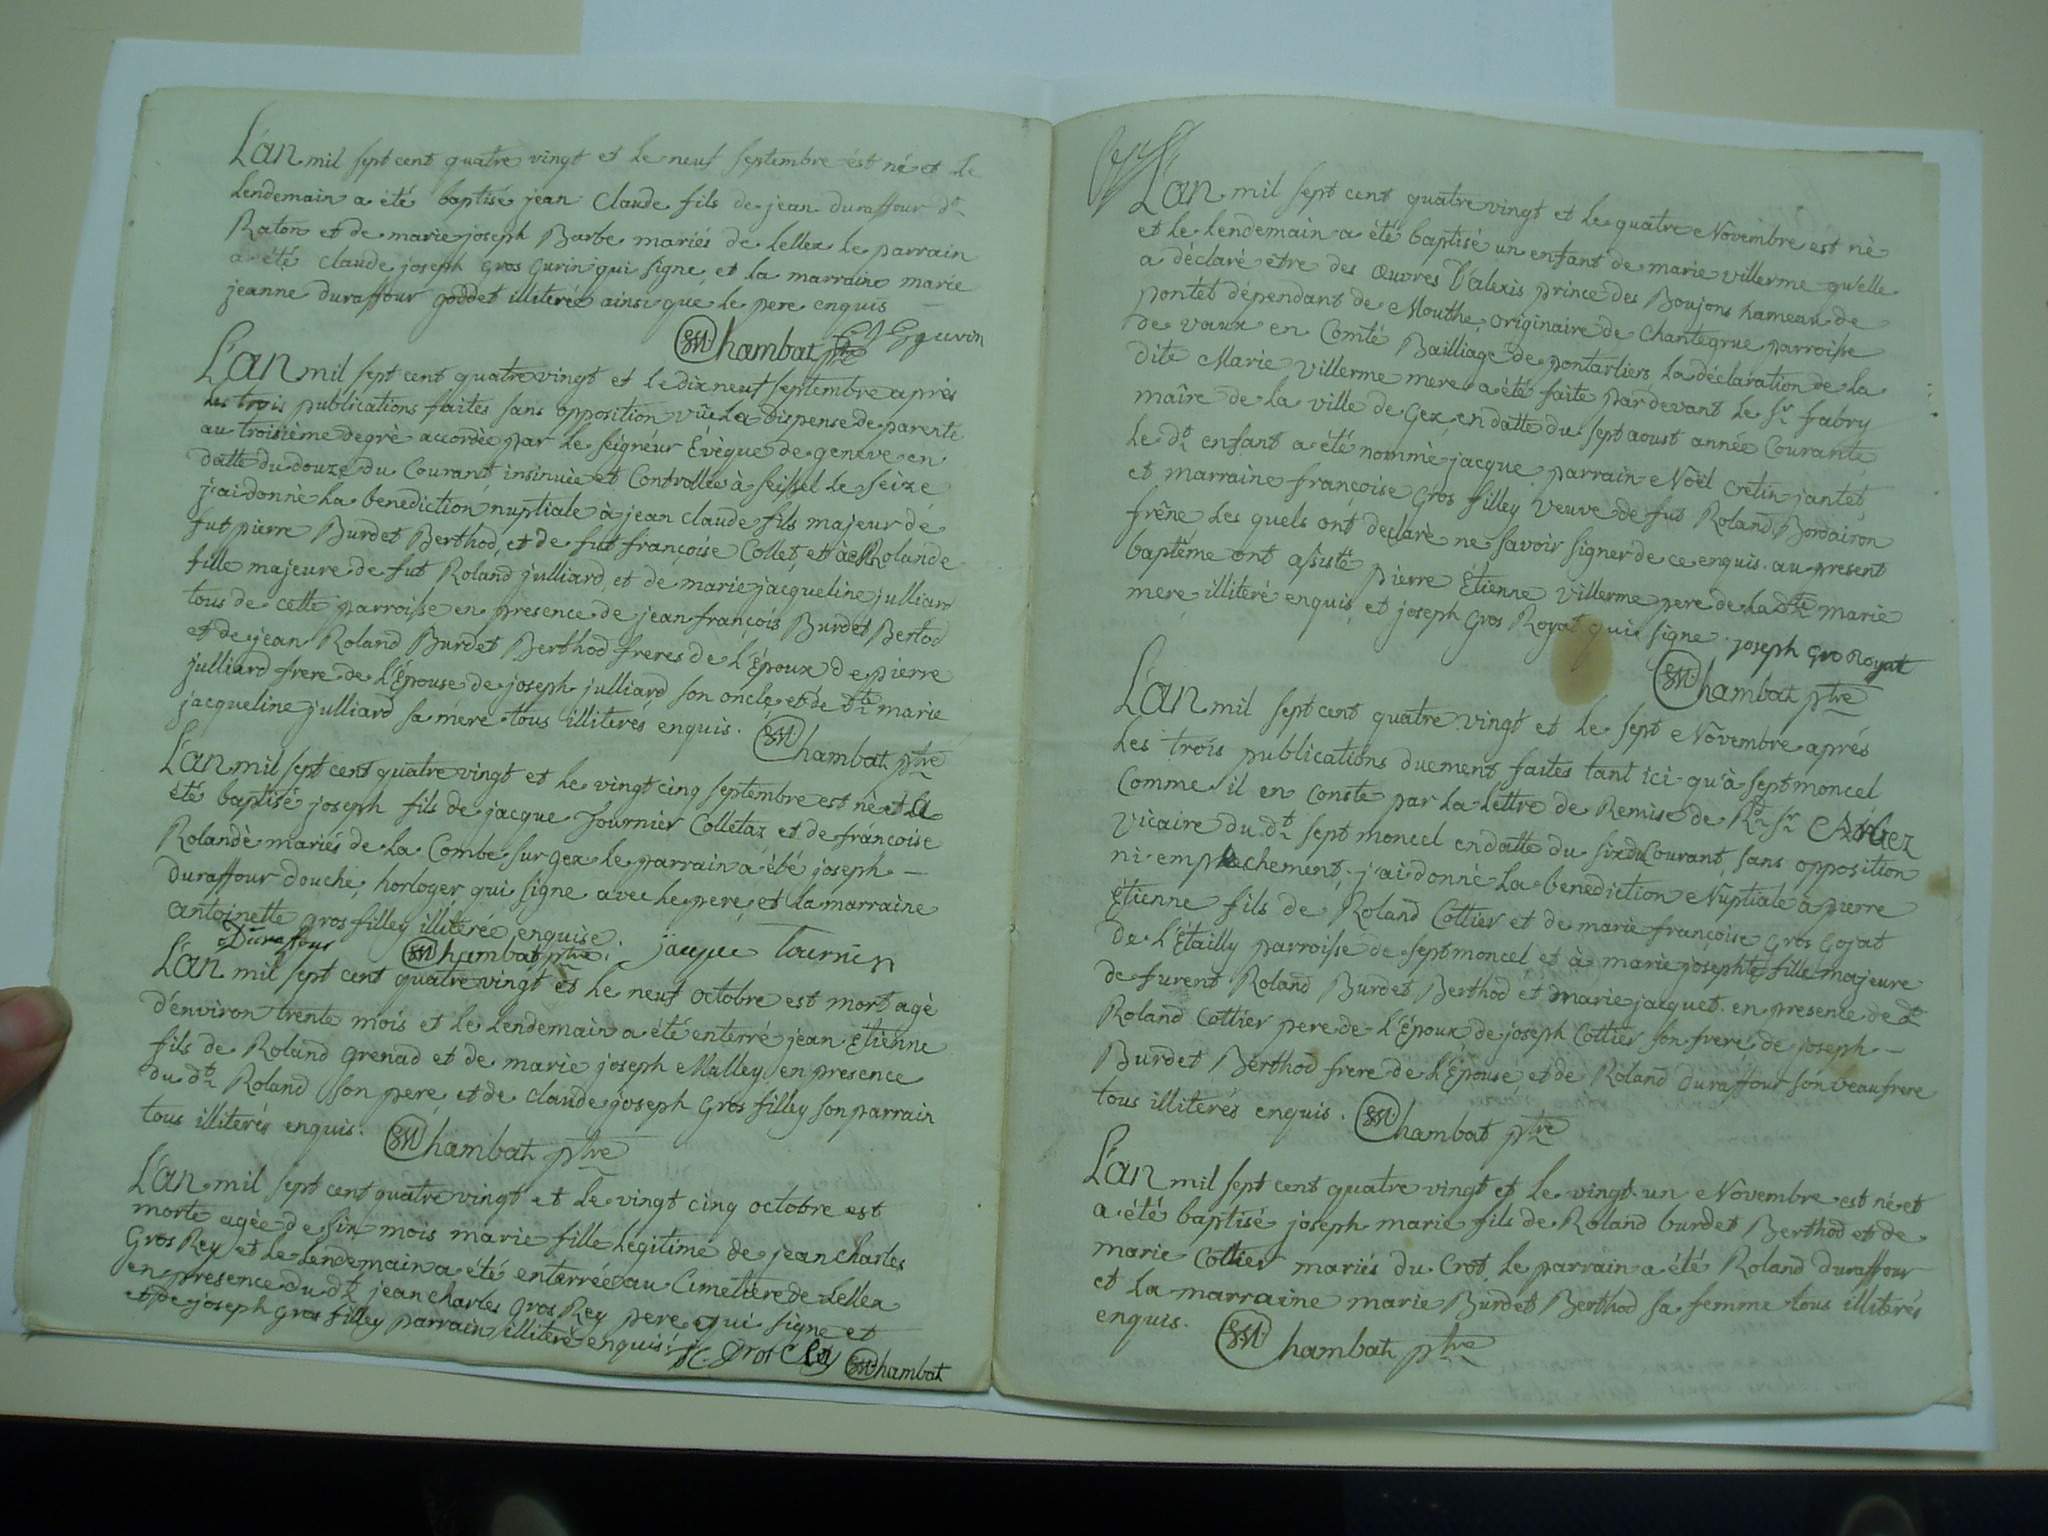 L'an mil sept cent quatre vingt et le neuf septembre est né et le
lendemain a été baptisé jean Claude fils de jean duraffour dt
Raton et de marie joseph Barbe mariés de Lellex le parrain
a été claude joseph Gros Gurin qui signe et la marraine marie
jeanne duraffour goddet illiterée ainsi que le pere enquis
Chambat ptre
L'an mil sept cent quatre vingt et le dix neuf septembre après
les trois publications faites sans opposition vüe la Dispense de parenté
au troisième degré accordée par le seigneur Évêque de geneve en
datte du douze du Courant insinuée et Controllée à seissel le seize
j'ai donnè la benediction nuptiale à jean claude fils majeur de
fut pierre Burdet Berthod, et de fut françoise Collet, et à Rolande
fille majeure de fut Roland julliard et de marie jacqueline julliard
tous de cette parroisse en presence de jean françois Burdet Bertod
et de jean Roland Burdet Berthod freres de l'Époux de pierre
julliard frere de l'Épouse de joseph julliard son oncle et de dte marie
jacqueline julliard sa mere tous illiterés enquis. Chambat ptre
L'an mil sept cent quatre vingt et le vingt cinq septembre est né et a
été baptisé joseph fils de jacque Tournier Colletaz et de françoise
Rolandè mariés de la Combe sur gex le parrain a été joseph
duraffour douche, horloger qui signe avec le pere, et la marraine
antoinette gros filley illiterée enquise.
Duraffour Chambat ptre jacque Tournier
L'an mil sept cent quatre vingt et le neuf octobre est mort agé
d'environ trente mois et le lendemain a été enterré jean Etienne
fils de Roland Grenad et de marie joseph Malley, en presence
du dt Roland son pere et de claude joseph Gros filley son parrain
tous illiterés enquis. Chambat ptre
L'an mil sept cent quatre vingt et le vingt cinq octobre est
morte agée de six mois marie fille legitime de jean charles
Gros Rey et le lendemain a été enterrée au Cimetiere de Lellex
en presence du dt jean charles Gros Rey pere qui signe et
et de joseph Gros filley parrain illiteré enquis. Chambat
L'an mil sept cent quatre vingt et le quatre Novembre est né
et le lendemain a été baptisé un enfant de marie villerme qu'elle
a déclaré être des Œuvres D'alexis prince des Boujons hameau de
pontet dépendant de Mouthe, originaire de Chantegrue parroisse
de vaux en Comté Bailliage de pontarliers, la déclaration de la
dite Marie villerme mere a été faite pardevant le Sr fabry
maîre de la ville de Gex, en datte du sept aoust année Courante
le dt enfant a été nommé jacque, parrain Noël Cretin jantet,
et marraine françoise Gros filley veuve de fut Roland Bondairon
frêne les quels ont declaré ne savoir signer de ce enquis. au present
baptême ont assisté pierre Étienne villerme pere de la dte marie
mere illiteré enquis, et joseph Gros Royat qui a signe. joseph gro Royat
Chambat ptre
L'an mil sept cent quatre vingt et le sept Novembre aprés
les trois publications duement faites tant ici qu'à septmoncel
Comme il en conste par la lettre de Remise de Rd Sr
vicaire du dt septmoncel en datte du six du Courant, sans opposition
ni empechement, j'ai donné la benediction Nuptiale à pierre
Étienne fils de Roland Cottier et de marie françoise Gros Gojat
de l'Étailly parroisse de septmoncel et à marie josephte fille majeure
de furent Roland Burdet Berthod et marie jacquet. en presence de dt
Roland Cottier pere de l'Époux de joseph Cottier son frere, de joseph
Burdet Berthod frere de l'Épouse, et de Roland duraffour son veaufrere
tous illiterés enquis. Chambat ptre
L'an mil sept cent quatre vingt et le vingt un Novembre est né et
a été baptisé joseph marie fils de Roland burdet Berthod et de
marie Cottier mariés du Crot, le parrain a été Roland duraffour
et la marraine marie Burdet Berthod sa femme tous illiterés
enquis. Chambat ptre